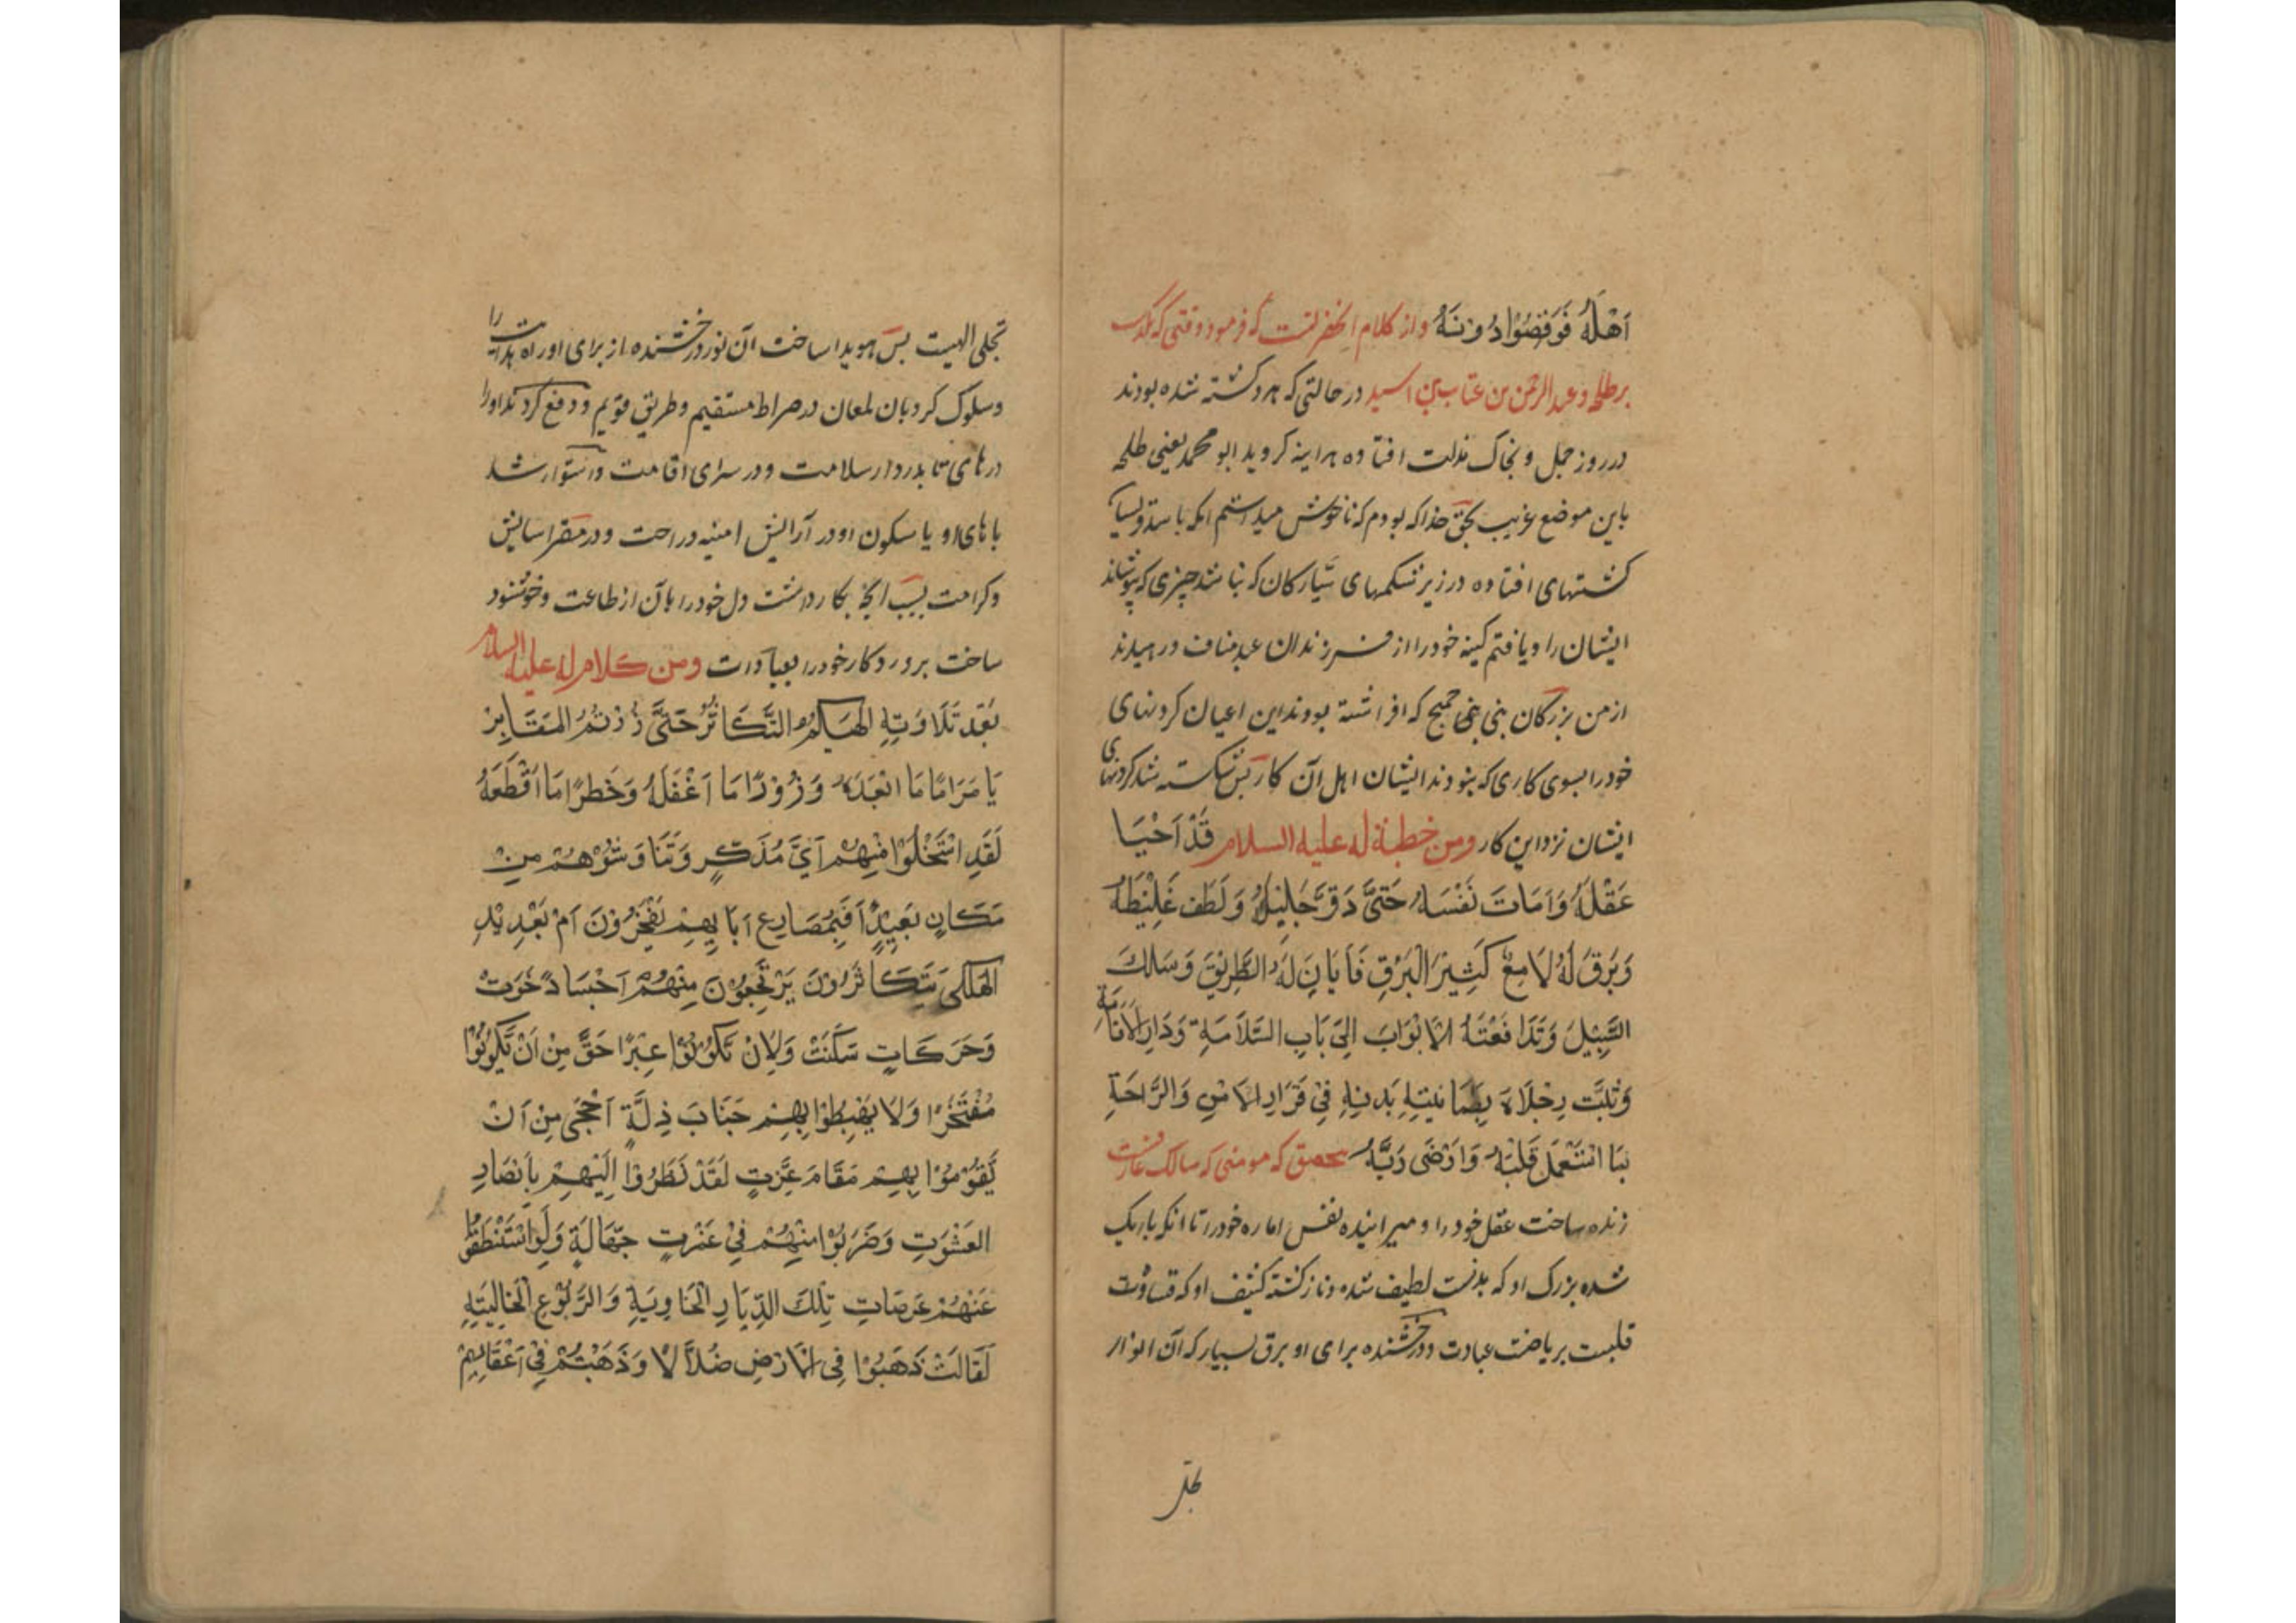 اَهْلَهُ فَوُقِصُوْا دُوْنَهُ و از کلام آنحضرتست که فرمود وقتی که بگذشت
بر طلحه و عبدالرحمن بن عتاب بن اسید در حالتی که هر دو کشته شده بودند
در روز جمل و بخاک مذلت افتاده هراینه کردید ابو محمد یعنی طلحه
باین موضع غریب بحق خدا که بودم که ناخوش میداشتم انکه باشد قریش
کشتهای افتاده در زیر شکمهای ستارکان که نباشد چیزی که بپوشاند
ایشان را و یافتم کینه خود را از فرزندان عبد مناف و رمیدند
از من بزرکان بنی جمح که افراشته بودند این اعیان کردنهای
خود را بسوی کاری که نبودند ایشان اهل آن کار پس شکسته شد کردنهای
ایشان نزد این کار ومن خطبة له علیه السلام قَدْ اَحْيَا
عَقْلَهُ وَاَمَاتَ نَفْسَهُ حَتَّى دَقَّ جَلِيْلُهُ وَلَطُفَ غَلِيْظُهُ
وَبَرَقَ لَهُ لَامِعٌ كَثِيْرُ الْبَرْقِ فَاَبَانَ لَهُ الطَّرِيْقَ وَسَلَكَ
السَّبِيْلَ وَتَدَافَعَتْهُ الْاَبْوَابَ اِلَى بَابِ السَّلَامَةِ وَدَارِ الْاِقَامَةِ
وَثَبَتَتْ رِجْلَاهُ بِطُمَانِيْنَةِ بَدَنِهِ فِيْ قَرَارِ الْاَمْنِ وَالرَّاحَةِ
بِمَا اسْتَعْمَلَ قَلْبَهُ وَاَرْضَى رَبَّهُ بتحقیق که مومنی که سالک عارفست
زنده ساخت عقل خود را و میرانیده نفس اماره خود را تا انکه باریک
شده بزرک او که بدنست لطیف شده و نازک کشته کثیف او که قساوت
قلبست بریاضت عبادت و درخشنده برای او برق بسیار که آن انوار
تجلی
تجلی الهیت پس هویدا ساخت آن نور درخشنده از برای او راه هدایت را
و سلوک کرد بان لمعان در صراط مستقیم و طریق قویم و دفع کردند او را
درهای تا بدر دار سلامت و در سرای اقامت و استوار شد
پاهای او با سکون او در آرامش امنیه و راحت و در مقر اسایش
و کرامت بسبب آنچه بکار داشت دل خود را بآن از طاعت و خوشنود
ساخت پروردکار خود را بعبادات ومن کلام له علیه السلام
بَعْدَ تِلَاوَتِهِ الْهٰيكُمُ التَّكَاثُرُ حَتَّى زُرْتُمُ الْمَقَابِرَ
يَا مَرَامًا مَا اَبْعَدَهُ وَزُوْرًا مَا اَغْفَلَهُ وَخَطَرًا مَا اَفْظَعَهُ
لَقَدِ اسْتَخْلَوْا مِنْهُمْ اَيَّ مُذَكِّرٍ وَتَنَاوَشُوْهُمْ مِنْ
مَكَانٍ بَعِيْدٍ اَفَبِمَصَارِعِ اٰبَائِهِمْ يَفْخَرُوْنَ اَمْ بِعَدِيْدِ
الْهَلْكَى يَتَكَاثَرُوْنَ يَرْتَجِعُوْنَ مِنْهُمْ اَجْسَادًا خَوَتْ
وَحَرَكَاتٍ سَكَنَتْ وَلَاِنْ تَكُوْنُوْا عِبَرًا حَقٌّ مِنْ اَنْ تَكُوْنُوْا
مُفْتَخَرًا وَلَا يَهْبِطُوْا بِهِمْ جَنَابَ ذِلَّةٍ اَحْجَى مِنْ اَنْ
يَقُوْمُوْا بِهِمْ مَقَامَ عِزَّتٍ لَقَدْ نَظَرُوْا اِلَيْهِمْ بِاَبْصَارِ
الْعَشْوَتِ وَضَرَبُوْا مِنْهُمْ فِيْ غَمْرَتِ جَهَالَةٍ وَلَوِ اسْتَنْطَقُوْا
عَنْهُمْ عَرَصَاتِ تِلْكَ الدِّيَارِ الْخَاوِيَةِ وَالرُّبُوْعِ الْخَالِيَةِ
لَقَالَتْ ذَهَبُوْا فِى الْاَرْضِ ضُلَّالًا وَذَهَبْتُمْ فِيْ اَعْقَابِهِمْ